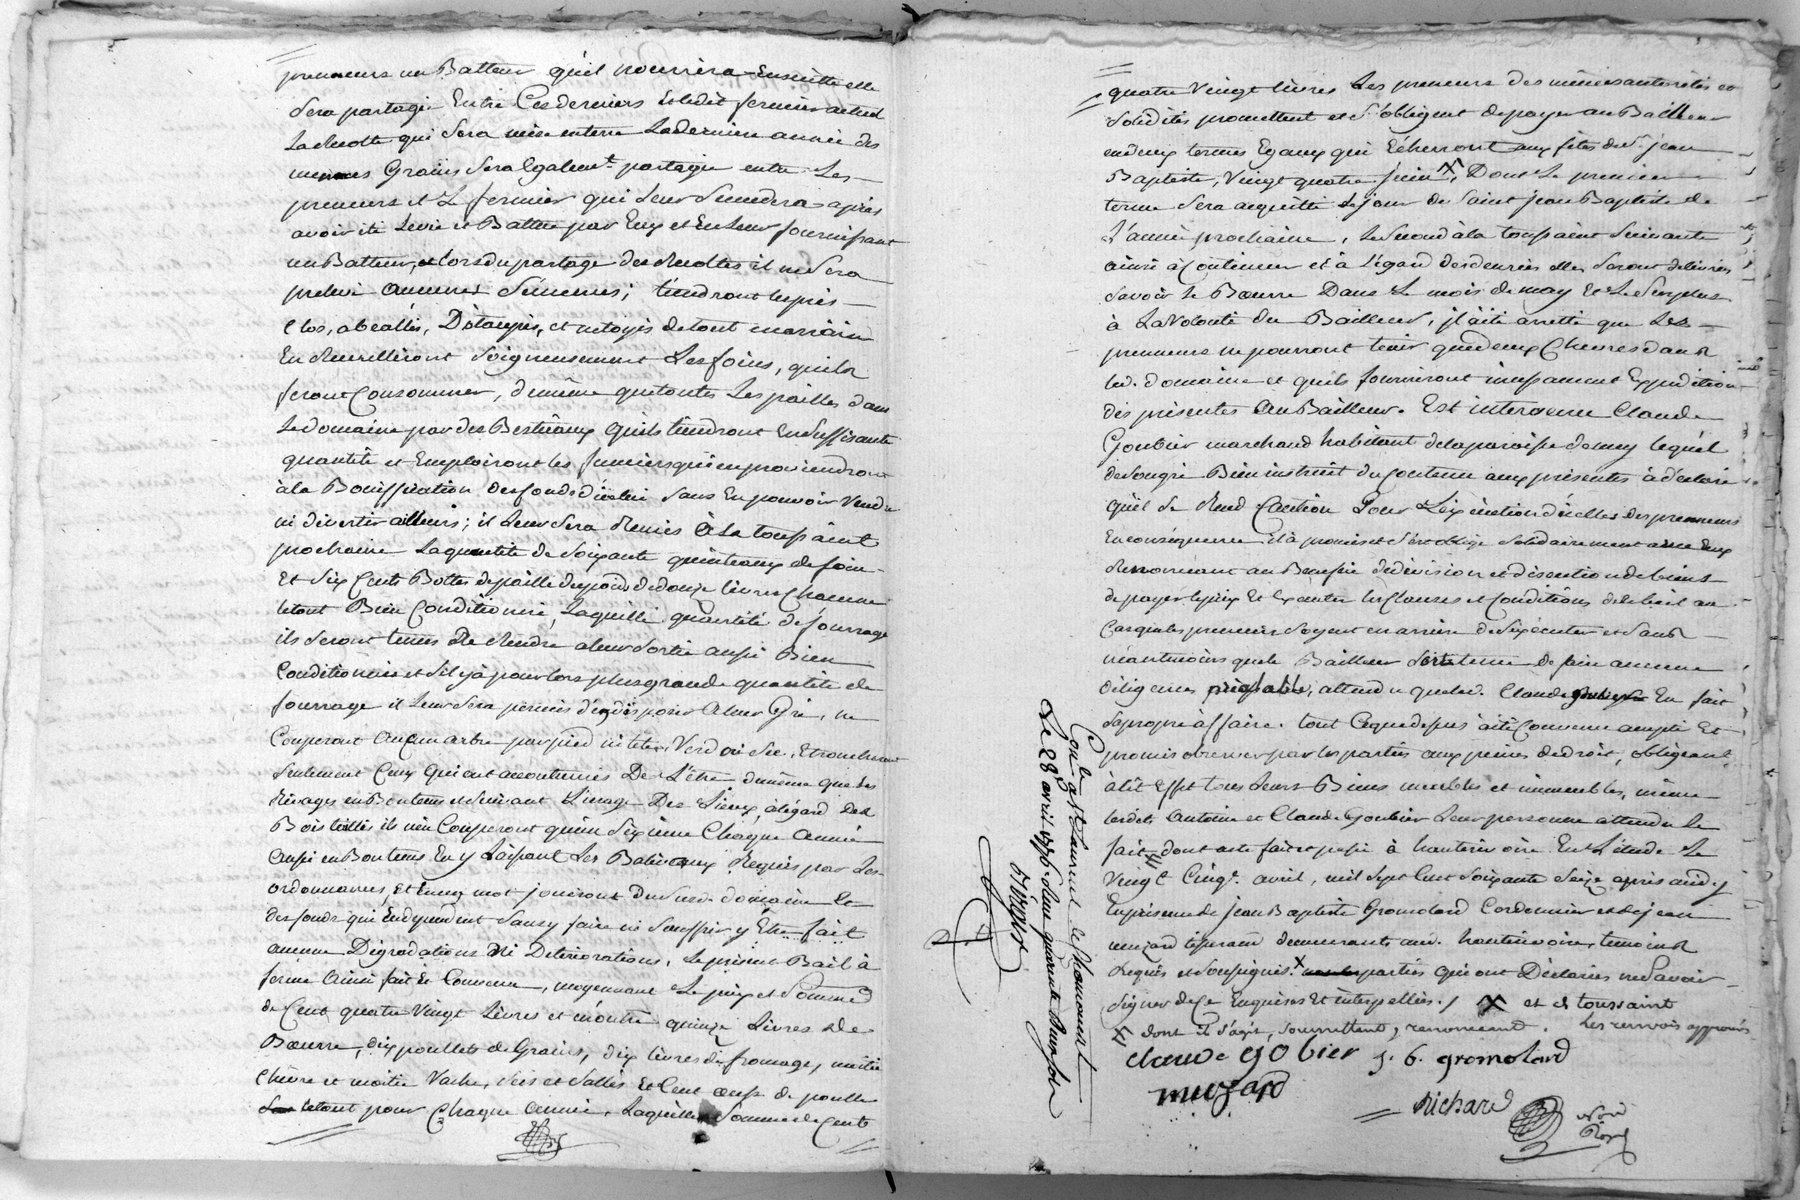 preneurs un Batteur quil nourrira Ensuitte elle
Sera partagée Entre Ces derniers et ledit fermier actuel
La Recolte qui Sera mise enterre La derniere année des
mesmes Grains Sera Egalemt. partagée entre Les
preneurs et Le fermier qui Leur Succedera apres
avoir été Levée et Battue par Eux et En Leur fournissant
un Batteur, et lors du partage des Recoltes il ne Sera
prelevé aucunes Semences; tiendront les prés
Clos, abealés, Détaupés, et netoyés de tout
En Recuilliront Soigneusement Les foins, quils
feront Consommer, de même que toutes Les pailles dans
Le domaine par des Bestiaux quils tiendront En Suffisante
quantité et Emploiront les fumiers qui en proviendront
à la Bonification des fonds d'icelui Sans En pouvoir Vendre
ni divertir ailleurs; il Leur Sera Remis à La toussaint
prochaine La quantité de Soixante quintaux de foin
Et Six Cents Bottes de paille du poids de douze livres Chacune
letout Bien Conditionné, Laquelle quantité de fourrage
ils Seront tenus De Rendre a leur Sortie aussi Bien
Conditionnée et Sil y à pour lors plus grande quantité de
fourrage il Leur Sera permis d'en disposer A leur Gré, ne
Couperont Aucun arbre par pied ni tete, Verd ou Sec, Etroncheront
Seulement Ceux qui ont accoutumés De L'être de même que les
Rivages en Bon tems et Suivant L'usage Des Lieux, a légard des
Bois taillis ils n'en Couperont qu'un Sixieme Chaque année
aussi en Bon tems En y Laissant Les Baliveaux Requis par Les
ordonnances, et En un mot jouiront Dud domaine et
des fonds qui En dependent Sans y faire ni Souffrir y Etre fait
aucune Dégradations Ni Deteriorations, Le present Bail à
ferme Ainsi fait et Convenu, moyennant Le prix et Somme
de Cent quatre Vingt Livres et quinze Livres de
Bœurre, dix poullets de Grains, dix livres de fromage, moitié
Chévre et moitié Vache, Secs et Sallés Et Cent œufs de poulle
letout pour Chaque année, Laquelle Somme de Cent
quatre Vingt livres Les preneurs des mêmes autorités et
Solidités promettent et S'obligent de payer au Bailleur
en deux termes Egaux qui Echerront aux fêtes de St. jean
Baptiste, Vingt quatre juin X, Dont Le premier
terme Sera acquitté Le jour de Saint jean Baptiste de
L'année prochaine, Le Second à la toussaint Suivante
ainsi à Continuer et à L'égard des denrées elles Seront delivrées
Savoir Le Bœurre Dans Le mois de may et Le Surplus
à La Volonté du Bailleur, il à été arretté que Les
preneurs ne pourront tenir que deux Chevres dans
led. domaine et quils fourniront incessament Expedition
des présentes Au Bailleur. Est intervenu Claude
Goubier marchand habitant de la paroisse de lequel
de Son gré Bien instruit du Contenu aux présentes à déclaré
quil Se Rend Caution Pour L'éxécution d'icelles des preneurs
En conséquence il à promis et S'est obligé Solidairement avec Eux
Renonceant au Benefice de division et discution de biens
de payer le prix Et Executer les Clauses et Conditions dud Bail au
Cas que les preneurs Soyent en arriere de Lexécuter et Sans
néantmoins que le Bailleur Soit tenu de faire aucune
diligence préalable, attendu que led. Claude Goubier En fait
Sa propre affaire. tout Ce que dessus à été Convenu accepté Et
promis observer par les parties aux peines de droit, obligeant
à cet Effet tous Leurs Biens meubles et immeubles, même
lesdits Antoine et Claude Goubier Leur personne attendu Le
fait, dont acte fait et passé à hauterivoire En L'étude Le
Vingt Cinq. avril, mil Sept Cent Soixante Seize apres midy
En présence de Jean Baptiste Gromolard Cordonnier et de jean
muzard tisserand demeurants aud. hauterivoire, temoins
Requis et Soussignés. X parties qui ont Déclarées ne Savoir
Signer de Ce Enquises Et interpellées./ X et et toussaint
dont il s'agit, soumettant, renonceant. Les renvois approuvés
claude gobier j. b. gromolard
muzard
Richard Nore
Roy
Conlé a St Laurent de Chamousset
Le 28 avril 1776. Reçu quarante Deux Sols